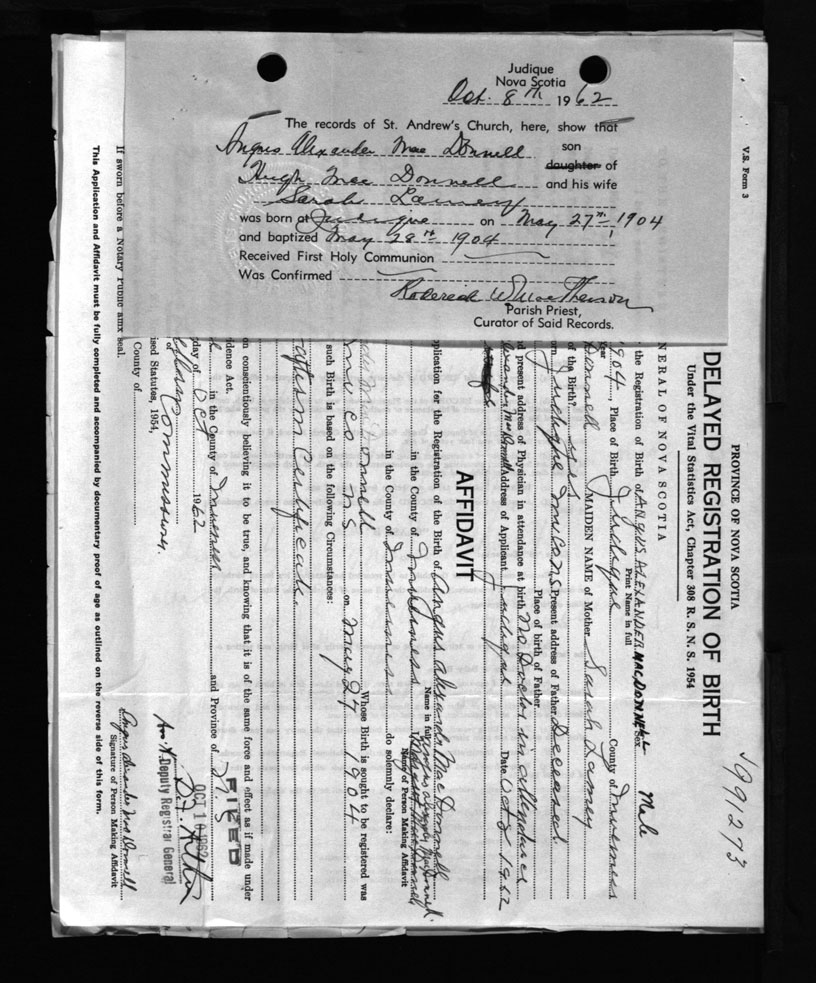 Judique
Nova Scotia
Oct. 8th 1962
The records of St. Andrew's Church, here, show that
Angus Alexander Mac Donnell son
daughter of
Hugh Mac Donnell and his wife
Sarah Lamey
was born at Judique on May 27th, 1904
and baptized May 28th 1904
Received First Holy Communion
Was Confirmed
Roderick W MacPherson
Parish Priest,
Curator of Said Records.
V.S. Form 3
PROVINCE OF NOVA SCOTIA
DELAYED REGISTRATION OF BIRTH
Under the Vital Statistics Act, Chapter 308 R. S. N. S. 1954
1991273
NERAL OF NOVA SCOTIA
the Registration of Birth of ANGUS ALEXANDER MACDONNELL Sex Male
Print Name in full
1904, Place of Birth Judique County of Inverness
Year
Donnell MAIDEN NAME of Mother Sarah Lamey
of the Birth? yes
orn Judique Inv. Co. N.S. Present address of Father Deceased
Place of birth of Father
nd present address of Physician in attendance at birth No Doctor in attendance
Mac Donnell Address of Applicant Judique Date Oct 9 1962
AFFIDAVIT
pplication for the Registration of the Birth of Angus Alexander Mac Donnell
Name in full
in the County of Inverness
Name of Person Making Affidavit
in the County of Inverness do solemnly declare:
Mac Donnell Whose Birth is sought to be registered was
Inv. Co. N.S. on May 27 1904
such Birth is based on the following Circumstances:
Baptism Certificate.
on conscientiously believing it to be true, and knowing that it is of the same force and effect as if made under
vidence Act.
in the County of Inverness and Province of N.S.
day of Oct 1962
FILED
OCT 10 1962
Deputy Registrar General
Commissary.
ised Statutes, 1954,
County of
Angus Alexander Mac Donnell
Signature of Person Making Affidavit
If sworn before a Notary Public affix seal.
This Application and Affidavit must be fully completed and accompanied by documentary proof of age as outlined on the reverse side of this form.